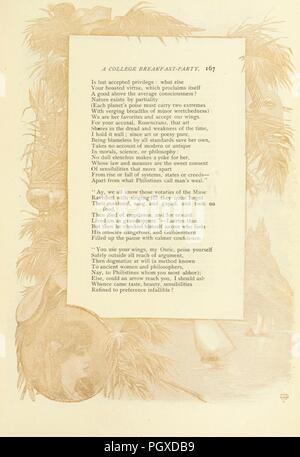 A COLLEGE BREAKFAST-PARTY. 167
Is but accepted privilege: what else
Your boasted virtue, which proclaims itself
A good above the average consciousness?
Nature exists by partiality
(Each planet's poise must carry two extremes
With verging breadths of minor wretchedness)
We are her favorites and accept our wings.
For your accusal, Rosencranz, that art
Shares in the dread and weakness of the time,
I hold it null; since art or poesy pure,
Being blameless by all standards save her own,
Takes no account of modern or antique
In morals, science, or philosophy:
No dull elenchus makes a yoke for her,
Whose law and measure are the sweet consent
Of sensibilities that move apart
From rise or fall of systems, states or creeds—
Apart from what Philistines call man's weal."
"Ay, we all know those votaries of the Muse
Ravished with singing till they quite forgot
Their manhood, sang, and gaped, and took no
food,
Then died of emptiness, and for reward
Lived on as grasshoppers"—Laertes thus:
But then he checked himself as one who feels
His muscles dangerous, and Guildenstern
Filled up the pause with calmer confidence.
"You use your wings, my Osric, poise yourself
Safely outside all reach of argument,
Then dogmatize at will (a method known
To ancient women and philosophers,
Nay, to Philistines whom you most abhor);
Else, could an arrow reach you, I should ask
Whence came taste, beauty, sensibilities
Refined to preference infallible?
alamy
PGXDB9
www.alamy.com